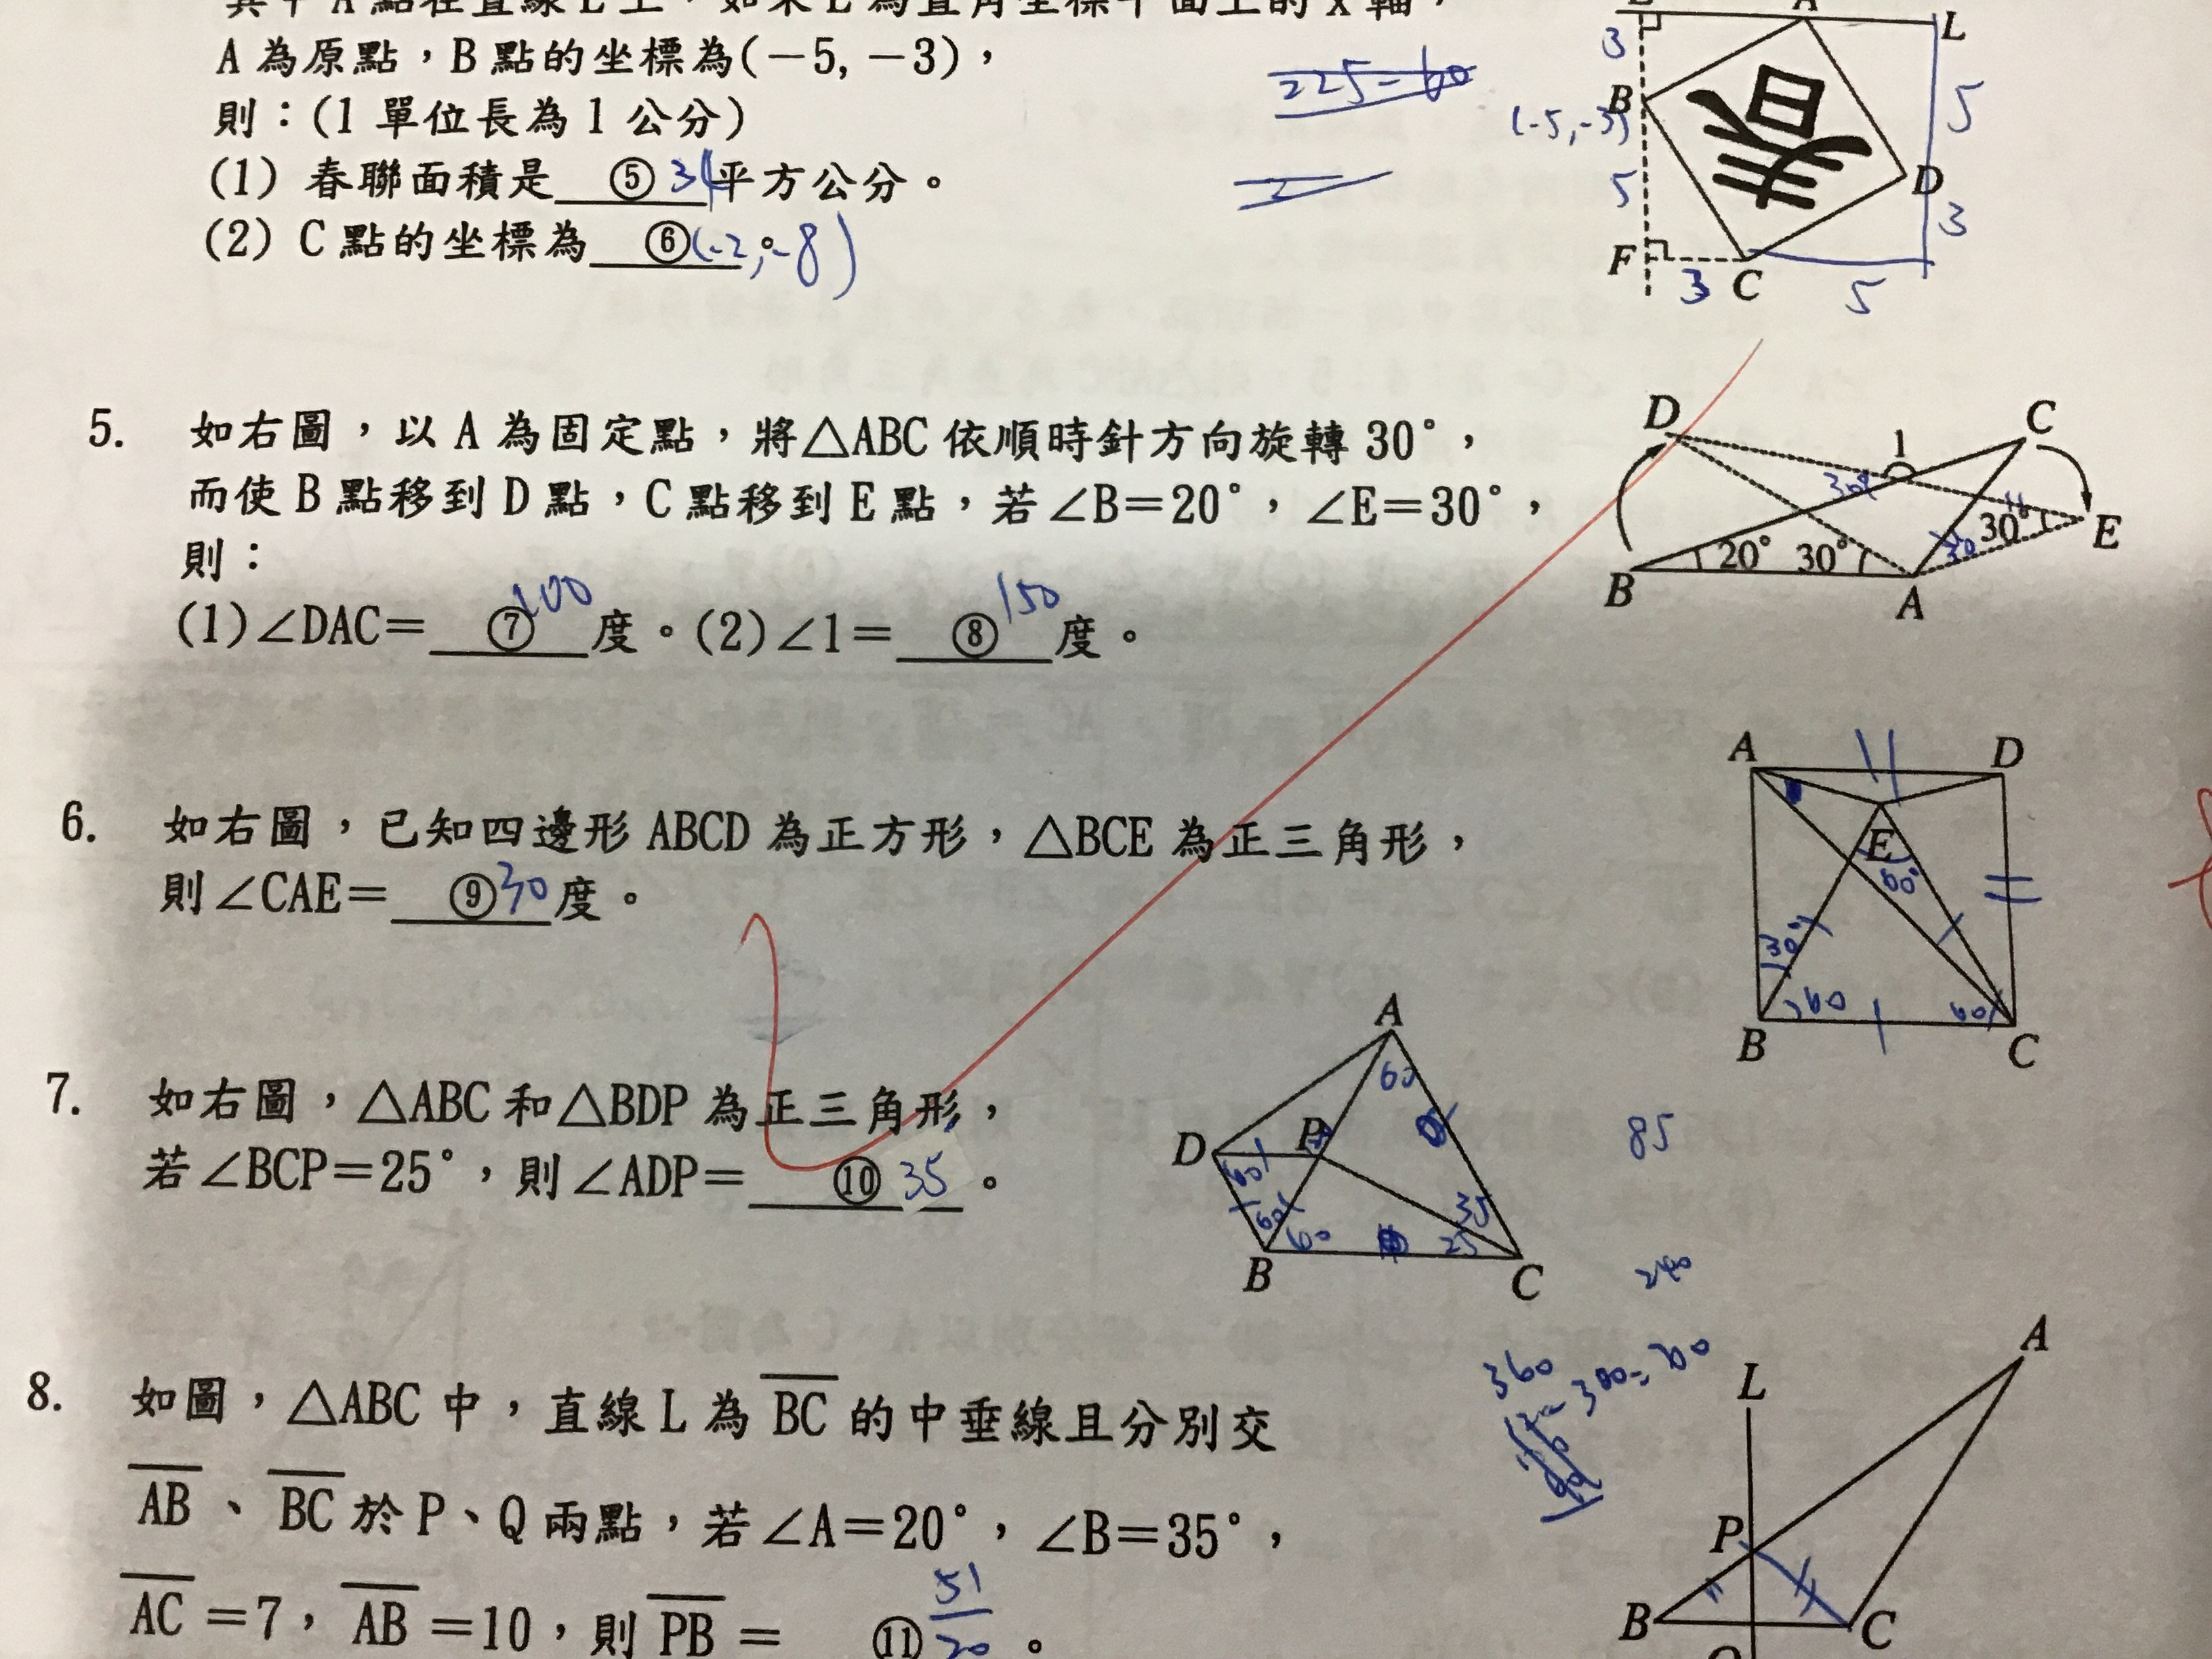 其中 A 點在直線 L 上，如果 L 為直角坐標平面上的 x 軸，
A 為原點，B 點的坐標為(－5,－3)，
則：(1 單位長為 1 公分)
(1) 春聯面積是 ⑤ 34 平方公分。
(2) C 點的坐標為 ⑥ (-2,-8) 。
225-60
A L
3 5
B
(-5,-3)
D
5 3
F 3 C 5
5. 如右圖，以 A 為固定點，將△ABC 依順時針方向旋轉 30°，
而使 B 點移到 D 點，C 點移到 E 點，若∠B＝20°，∠E＝30°，
則：
(1)∠DAC＝ ⑦ 100 度。(2)∠1＝ ⑧ 150 度。
D 1 C
30°
30° E
B 20° 30° 30
A
6. 如右圖，已知四邊形 ABCD 為正方形，△BCE 為正三角形，
則∠CAE＝ ⑨ 30 度。
A D
E
60°
30°
60 60
B C
7. 如右圖，△ABC 和△BDP 為正三角形，
若∠BCP＝25°，則∠ADP＝ ⑩ 35 。
A
60
D P
60
60 60 35
25
B C
85
240
360
-300=
8. 如圖，△ABC 中，直線 L 為 BC 的中垂線且分別交
AB、BC 於 P、Q 兩點，若∠A＝20°，∠B＝35°，
AC＝7，AB＝10，則 PB＝ ⑪ 51/20 。
A
L
P
B C